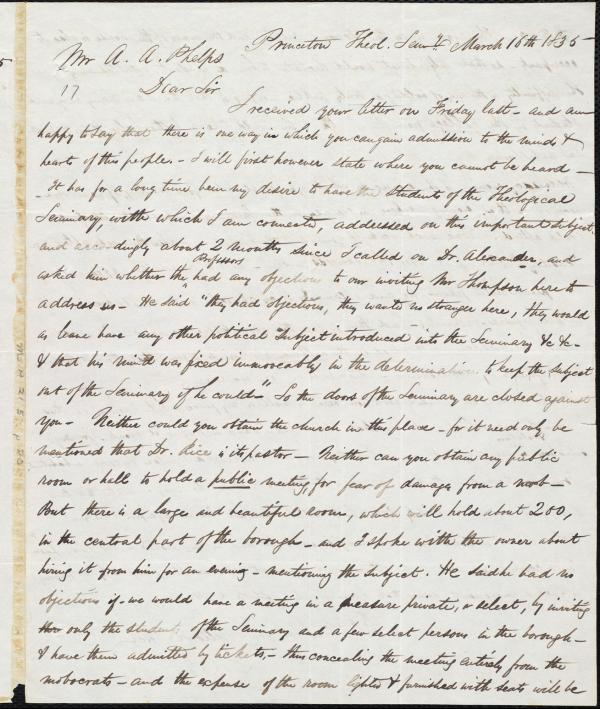 Princeton Theol. Semy March 16th 1835 -
Mr A. A. Phelps
17
Dear Sir
I received your letter on Friday last - and am
happy to say that there is one way in which you can gain admission to the minds &
hearts of this people. - I will first however state where you cannot be heard -
It has for a long time been my desire to have the students of the Theological
Seminary, with which I am connected, addressed on this important subject,
and accordingly about 2 months since I called on Dr. Alexander, and
Professors
asked him whether the had any objections to our inviting Mr Thompson here to
address us - He said "they had objections, they wanted no stranger here, they would
as leave have any other political subject introduced into the Seminary &c &c -
& that his mind was fixed immovably in the determination to keep the subject
out of the Seminary if he could -" So the doors of the Seminary are closed against
you - Neither could you obtain the church in this place - for it need only be
mentioned that Dr. Rice is its pastor - Neither can you obtain any public
room or hall to hold a public meeting, for fear of damage from a mob -
But there is a large and beautiful room, which will hold about 200,
in the central part of the borough - and I spoke with the owner about
hiring it from him for an evening - mentioning the subject. He said he had no
objections if we would have a meeting in a measure private, or select, by inviting
only the students of the Seminary and a few select persons in the borough -
& have them admitted by tickets. - thus concealing the meeting entirely from the
mobocrats - and the expense of the room lighted & furnished with seats will be